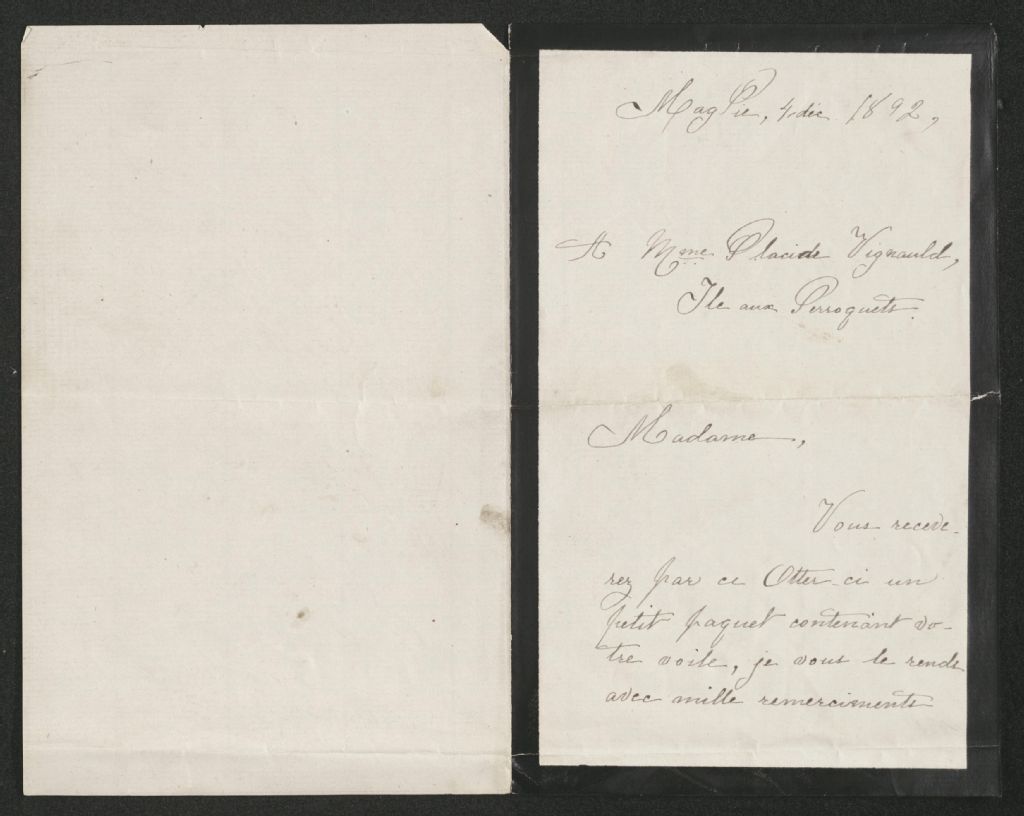 MagPie, 4 déc 1892,
A Mme Placide Vignauld,
Ile aux Perroquets.
Madame,
Vous receve-
rez par ce Otter-ci un
petit paquet contenant vo-
tre voile, je vous le rends
avec mille remerciments